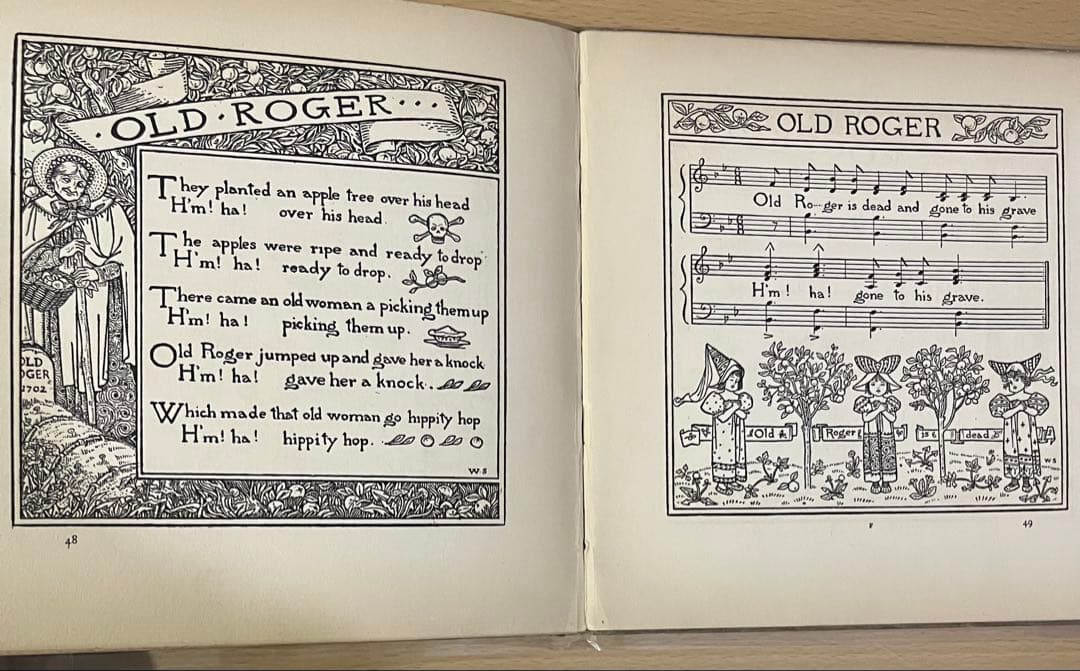 ·OLD·ROGER···
They planted an apple tree over his head
H'm! ha! over his head.
The apples were ripe and ready to drop
H'm! ha! ready to drop.
There came an old woman a picking them up
H'm! ha! picking them up.
Old Roger jumped up and gave her a knock
H'm! ha! gave her a knock.
Which made that old woman go hippity hop
H'm! ha! hippity hop.
OLD
OGER
1702
W S
48
OLD ROGER
Old Ro--ger is dead and gone to his grave
H'm! ha! gone to his grave.
Old
Roger
is
dead
W S
49